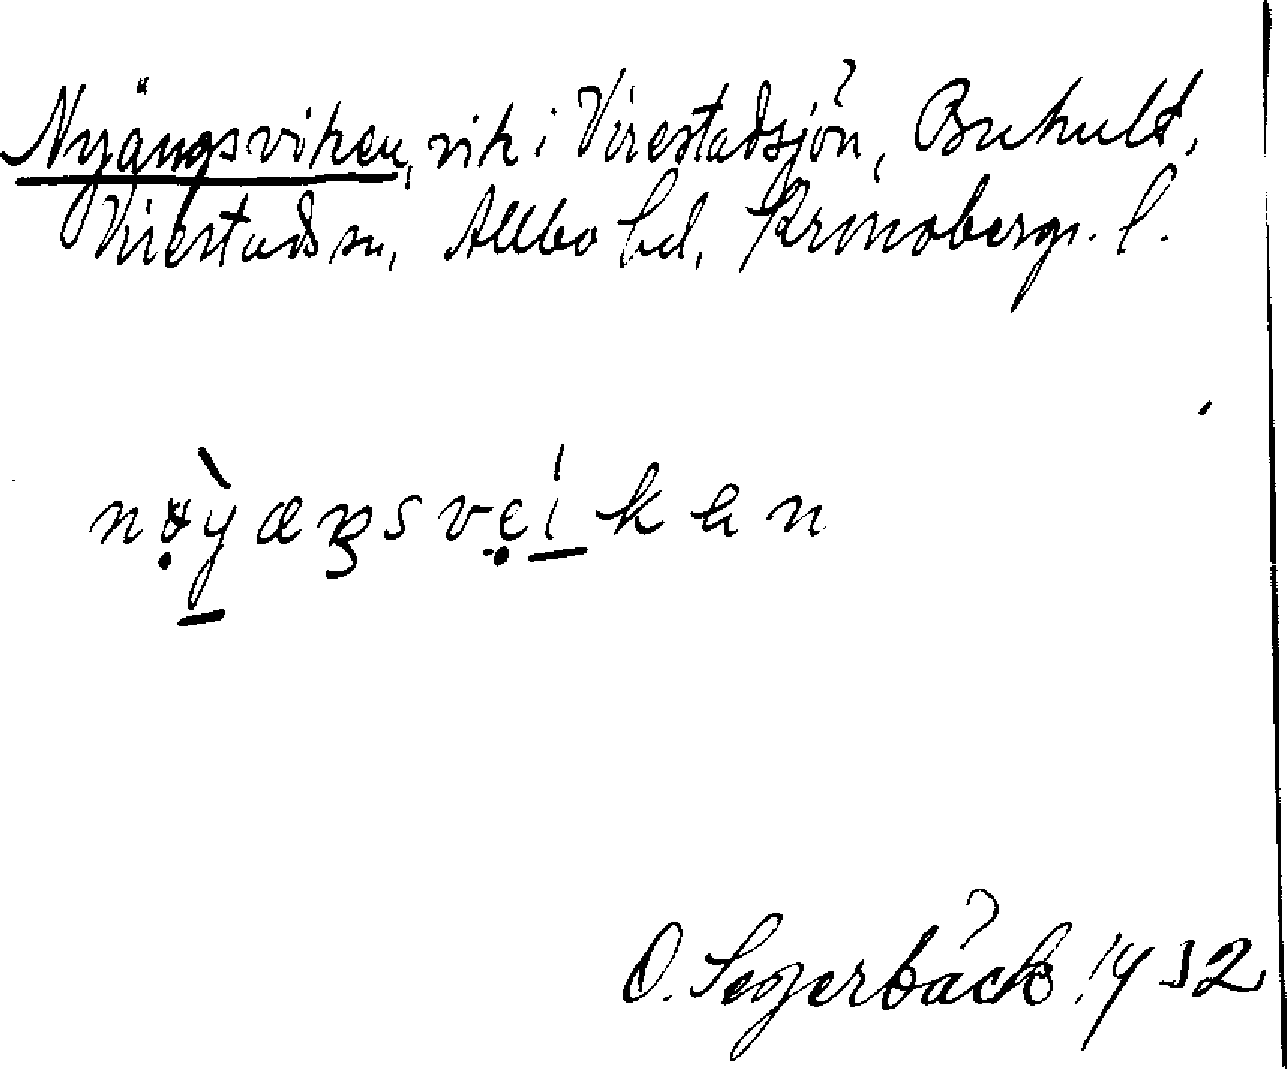 Nyängsviken, vik i Virestadsjön, Buhult,
Virestads sn, Allbo hd, Kronobergs. l.
O. Segerbäck 1932